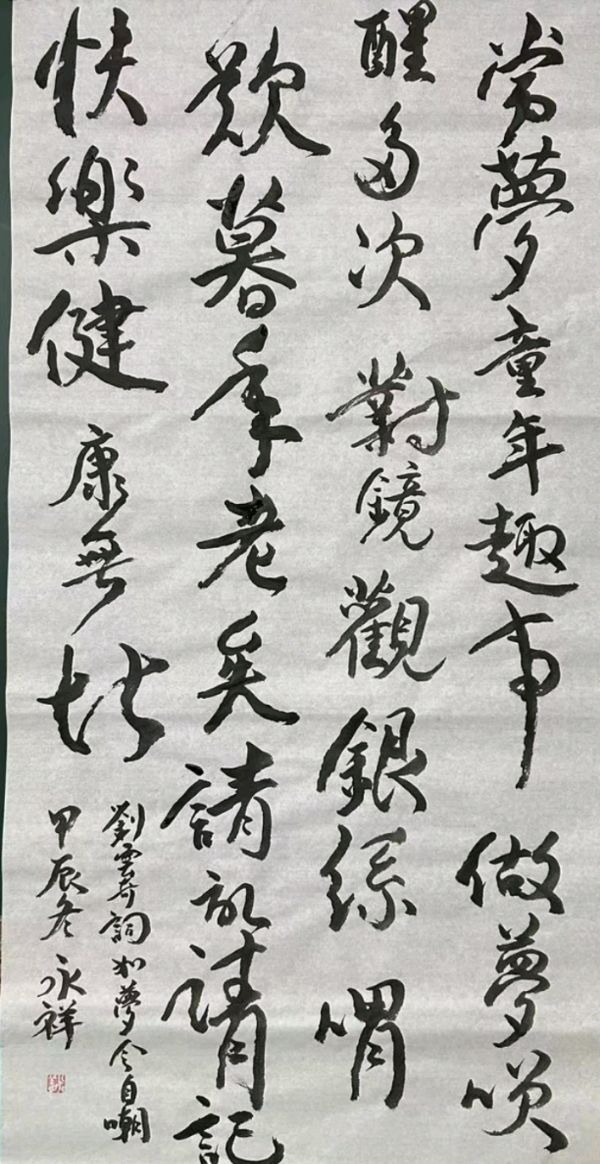 常夢童年趣事做夢咲
醒多次對鏡觀銀絲喟
歎暮年老矣請記請記
快樂健康無比
劉雲奇詞如夢令自嘲
甲辰冬永祥